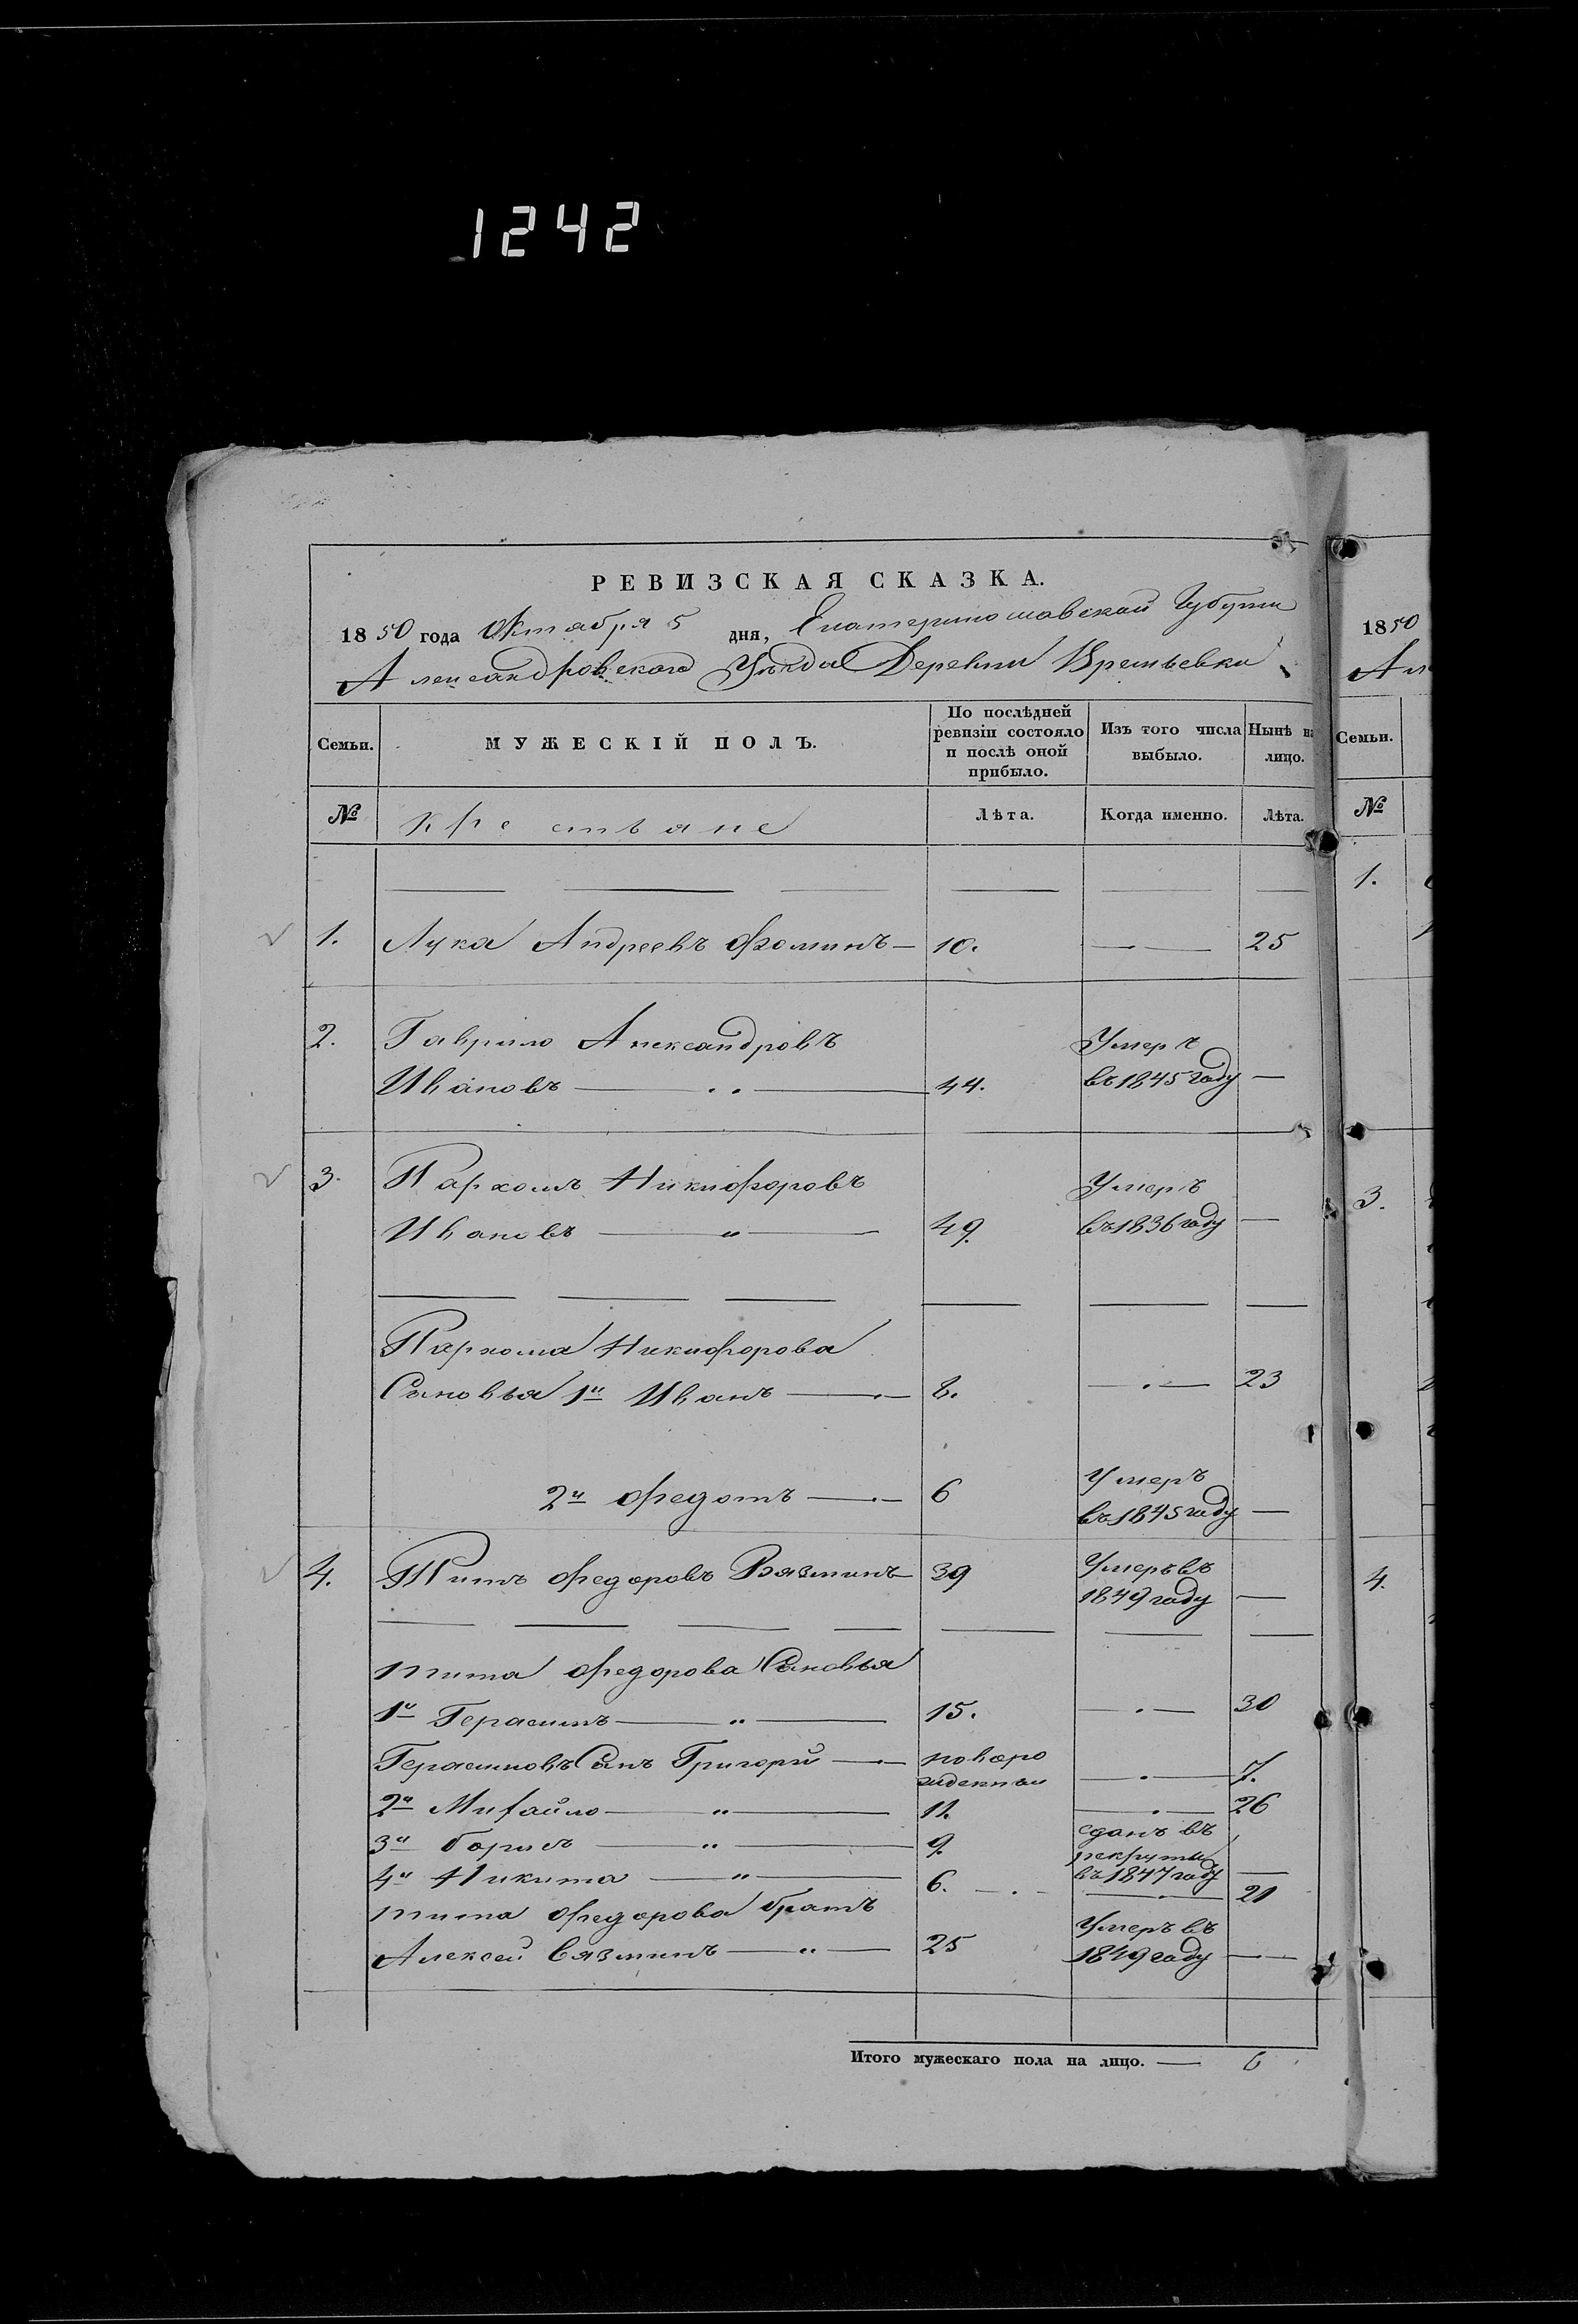 1242
РЕВИЗСКАЯ СКАЗКА.
1850 года Октября 5 дня, Екатеринославской Губерни
Александровского Уѣзда Деревни Времьевки
Семьи. МУЖЕСКІЙ ПОЛЪ. По послѣдней ревизіи состояло и послѣ оной прибыло. Изъ того числа выбыло. Нынѣ на лицо.
№ Крестьяне Лѣта. Когда именно. Лѣта.
1. Лука Андреевъ Фоминъ 10. 25
2. Гаврило Александровъ Умеръ
Ивановъ 44. въ 1845 году
3. Пархомъ Никифоровъ Умеръ
Ивановъ 49. въ 1836 году
Пархома Никифорова
Сыновья 1й Иванъ 8. 23
2й Федотъ 6 Умеръ
въ 1845 году
4. Титъ Федоровъ Вязминъ 39 Умеръ въ
1849 году
Тита Федорова Сыновья
1й Герасимъ 15. 30
Герасимовъ Сынъ Григорй новоро
жденный 7.
2й Михайло 11. 26
3й Борисъ 9. сданъ въ
рекруты
въ 1847 году
4й Никита 6. 21
Тита Федорова братъ Умеръ въ
Алексей Вязминъ 25 1849 году
Итого мужескаго пола на лицо. 6
1850
Ал
Семьи.
№
1.
3.
4.